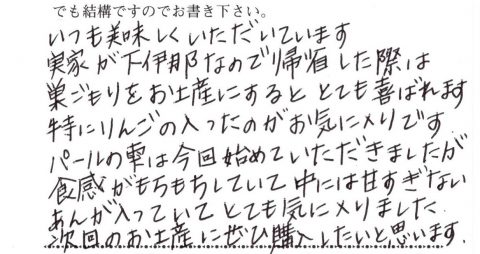 でも結構ですのでお書き下さい。
いつも美味しくいただいています
実家が下伊那なので帰省した際は
巣ごもりをお土産にすると とても喜ばれます
特にりんごの入ったのがお気に入りです
パールの車は今回始めていただきましたが
食感がもちもちしていて中には甘すぎない
あんが入っていてとても気に入りました
次回のお土産にぜひ購入したいと思います.